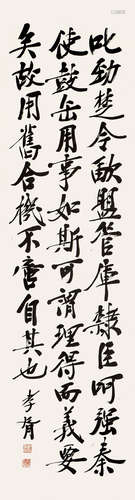 叱勁楚令歃盟管庫隸臣呵强秦
使鼓缶用事如斯可謂理得而義要
矣故用舊合機不啻自其也 孝胥